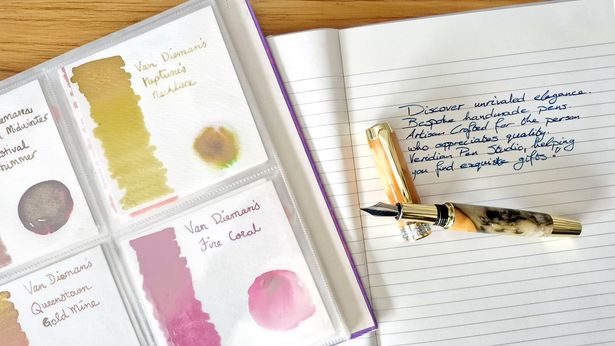 Van Dieman's
Neptune's
Necklace
Midwinter
Festival
Shimmer
Van Dieman's
Fire Coral
Van Dieman's
Queenstown
Gold Mine
Discover unrivaled elegance.
Bespoke handmade pens.
Artisan Crafted for the person
who appreciates quality.
Veridian Pen Studio, helping
you find exquisite gifts!